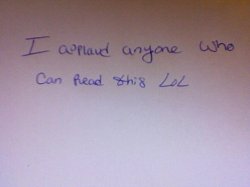 I applaud anyone who
Can Read this LoL